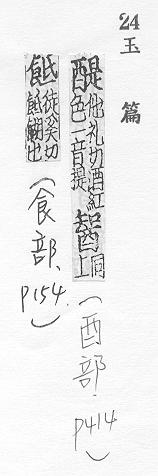 24
玉篇
醍他礼切酒紅
色一音提
同上
(酉部.
P414)
徒奚切
也
(食部、
P154.)